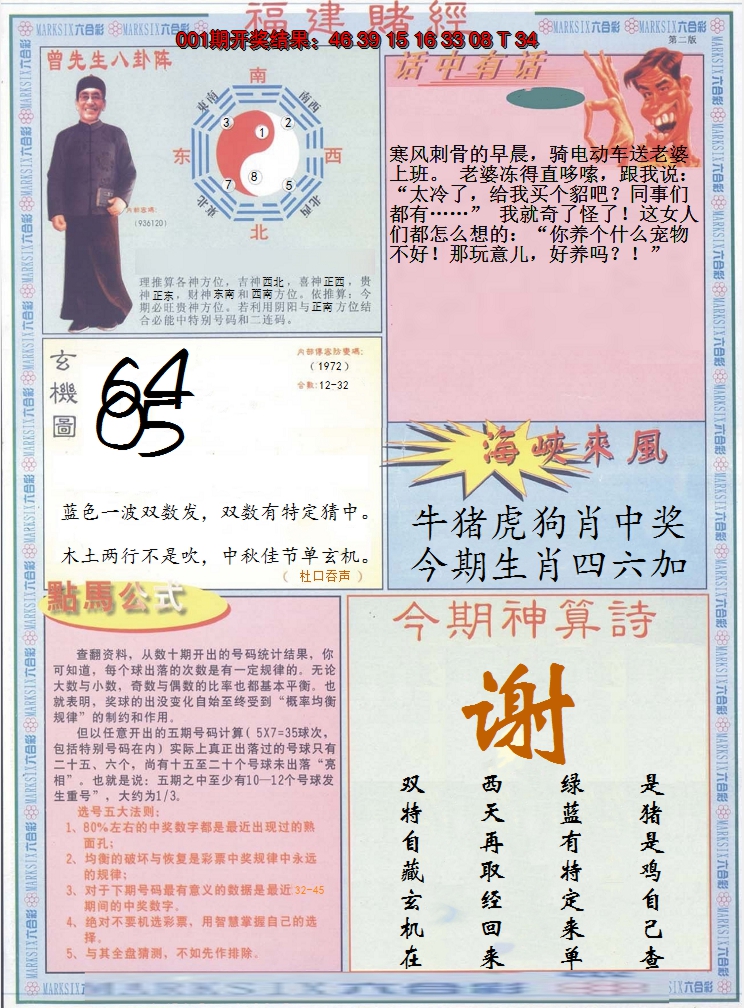 福建賭經
001期开奖结果：46 39 15 16 33 08 T 34
第二版
曾先生八卦阵
南
东南
南西
3
1
2
东
西
7
8
5
東北
北西
北
內部密碼：
（936120）
理推算各神方位，吉神西北，喜神正西，贵
神正东，财神东南和西南方位。依推算：今
期必旺贵神方位。若利用阴阳与正南方位结
合必能中特别号码和二连码。
话中有话
寒风刺骨的早晨，骑电动车送老婆
上班。 老婆冻得直哆嗦，跟我说：
“太冷了，给我买个貂吧？同事们
都有……” 我就奇了怪了！这女人
们都怎么想的：“你养个什么宠物
不好！那玩意儿，好养吗？！”
玄機圖
64
05
（1972）
合数:12-32
蓝色一波双数发，双数有特定猜中。
木土两行不是吹，中秋佳节单玄机。
（ 杜口吞声 ）
海峡來風
牛猪虎狗肖中奖
今期生肖四六加
點馬公式
查翻资料，从数十期开出的号码统计结果，你
可知道，每个球出落的次数是有一定规律的。无论
大数与小数，奇数与偶数的比率也都基本平衡。也
就表明，奖球的出没变化自始至终受到“概率均衡
规律”的制约和作用。
但以任意开出的五期号码计算( 5X7=35球次，
包括特别号码在内) 实际上真正出落过的号球只有
二十五、六个，尚有十五至二十个号球未出落“亮
相”。也就是说：五期之中至少有10—12个号球发
生重号”，大约为1/3。
选号五大法则：
1、80%左右的中奖数字都是最近出现过的熟
面孔；
2、均衡的破坏与恢复是彩票中奖规律中永远
的规律；
3、对于下期号码最有意义的数据是最近32-45
期间的中奖数字。
4、绝对不要机选彩票，用智慧掌握自己的选
择。
5、与其全盘猜测，不如先作排除。
今期神算詩
谢
是猪是鸡自己查
绿蓝有特定来单
西天再取经回来
双特自藏玄机在
MARKSIX六合彩